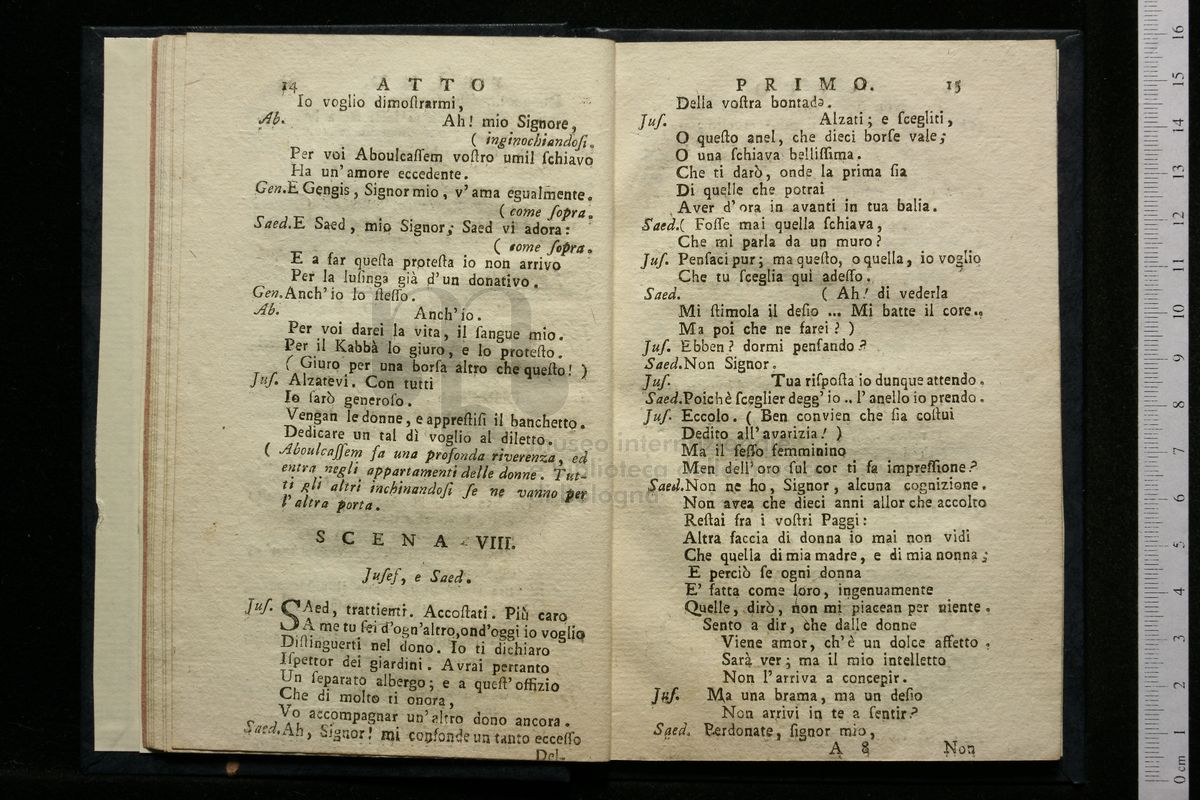 14 ATTO
Io voglio dimoſtrarmi,
Ab. Ah! mio Signore,
( inginochiandoſi.
Per voi Aboulcaſſem voſtro umil ſchiavo
Ha un' amore eccedente.
Gen. E Gengis, Signor mio, v' ama egualmente.
( come ſopra.
Saed. E Saed, mio Signor; Saed vi adora:
( come ſopra.
E a far queſta proteſta io non arrivo
Per la luſinga già d' un donativo.
Gen. Anch' io lo ſteſſo.
Ab. Anch' io.
Per voi darei la vita, il ſangue mio.
Per il Kabbà lo giuro, e lo proteſto.
( Giuro per una borſa altro che queſto! )
Juſ. Alzatevi. Con tutti
Io ſarò generoſo.
Vengan le donne, e appreſtiſi il banchetto.
Dedicare un tal dì voglio al diletto.
( Aboulcaſſem fa una profonda riverenza, ed
entra negli appartamenti delle donne. Tut-
ti gli altri inchinandoſi ſe ne vanno per
l' altra porta.
SCENA VIII.
Juſef, e Saed.
Juſ. SAed, trattienti. Accoſtati. Più caro
A me tu ſei d'ogn'altro, ond'oggi io voglio
Diſtinguerti nel dono. Io ti dichiaro
Iſpettor dei giardini. Avrai pertanto
Un ſeparato albergo; e a queſt' offizio
Che di molto ti onora,
Vo accompagnar un' altro dono ancora.
Saed. Ah, Signor! mi confonde un tanto ecceſſo
Del-
PRIMO. 15
Della voſtra bontade.
Juſ. Alzati; e ſcegliti,
O queſto anel, che dieci borſe vale;
O una ſchiava belliſſima.
Che ti darò, onde la prima ſia
Di quelle che potrai
Aver d' ora in avanti in tua balia.
Saed. ( Foſſe mai quella ſchiava,
Che mi parla da un muro?
Juſ. Penſaci pur; ma queſto, o quella, io voglio
Che tu ſceglia quì adeſſo.
Saed. ( Ah! di vederla
Mi ſtimola il deſio ... Mi batte il core..
Ma poi che ne farei? )
Juſ. Ebben? dormi penſando?
Saed. Non Signor.
Juſ. Tua riſpoſta io dunque attendo.
Saed. Poichè ſceglier degg' io .. l' anello io prendo.
Juſ. Eccolo. ( Ben convien che ſia coſtui
Dedito all' avarizia! )
Ma il ſeſſo femminino
Men dell' oro ſul cor ti fa impreſſione?
Saed. Non ne ho, Signor, alcuna cognizione.
Non avea che dieci anni allor che accolto
Reſtai fra i voſtri Paggi:
Altra faccia di donna io mai non vidi
Che quella di mia madre, e di mia nonna;
E perciò ſe ogni donna
E' fatta come loro, ingenuamente
Quelle, dirò, non mi piacean per niente.
Sento a dir, che dalle donne
Viene amor, ch' è un dolce affetto.
Sarà ver; ma il mio intelletto
Non l' arriva a concepir.
Juſ. Ma una brama, ma un deſio
Non arrivi in te a ſentir?
Saed. Perdonate, ſignor mio,
A 8 Non
museo internazionale
e biblioteca
bologna
0 cm 1 2 3 4 5 6 7 8 9 10 11 12 13 14 15 16